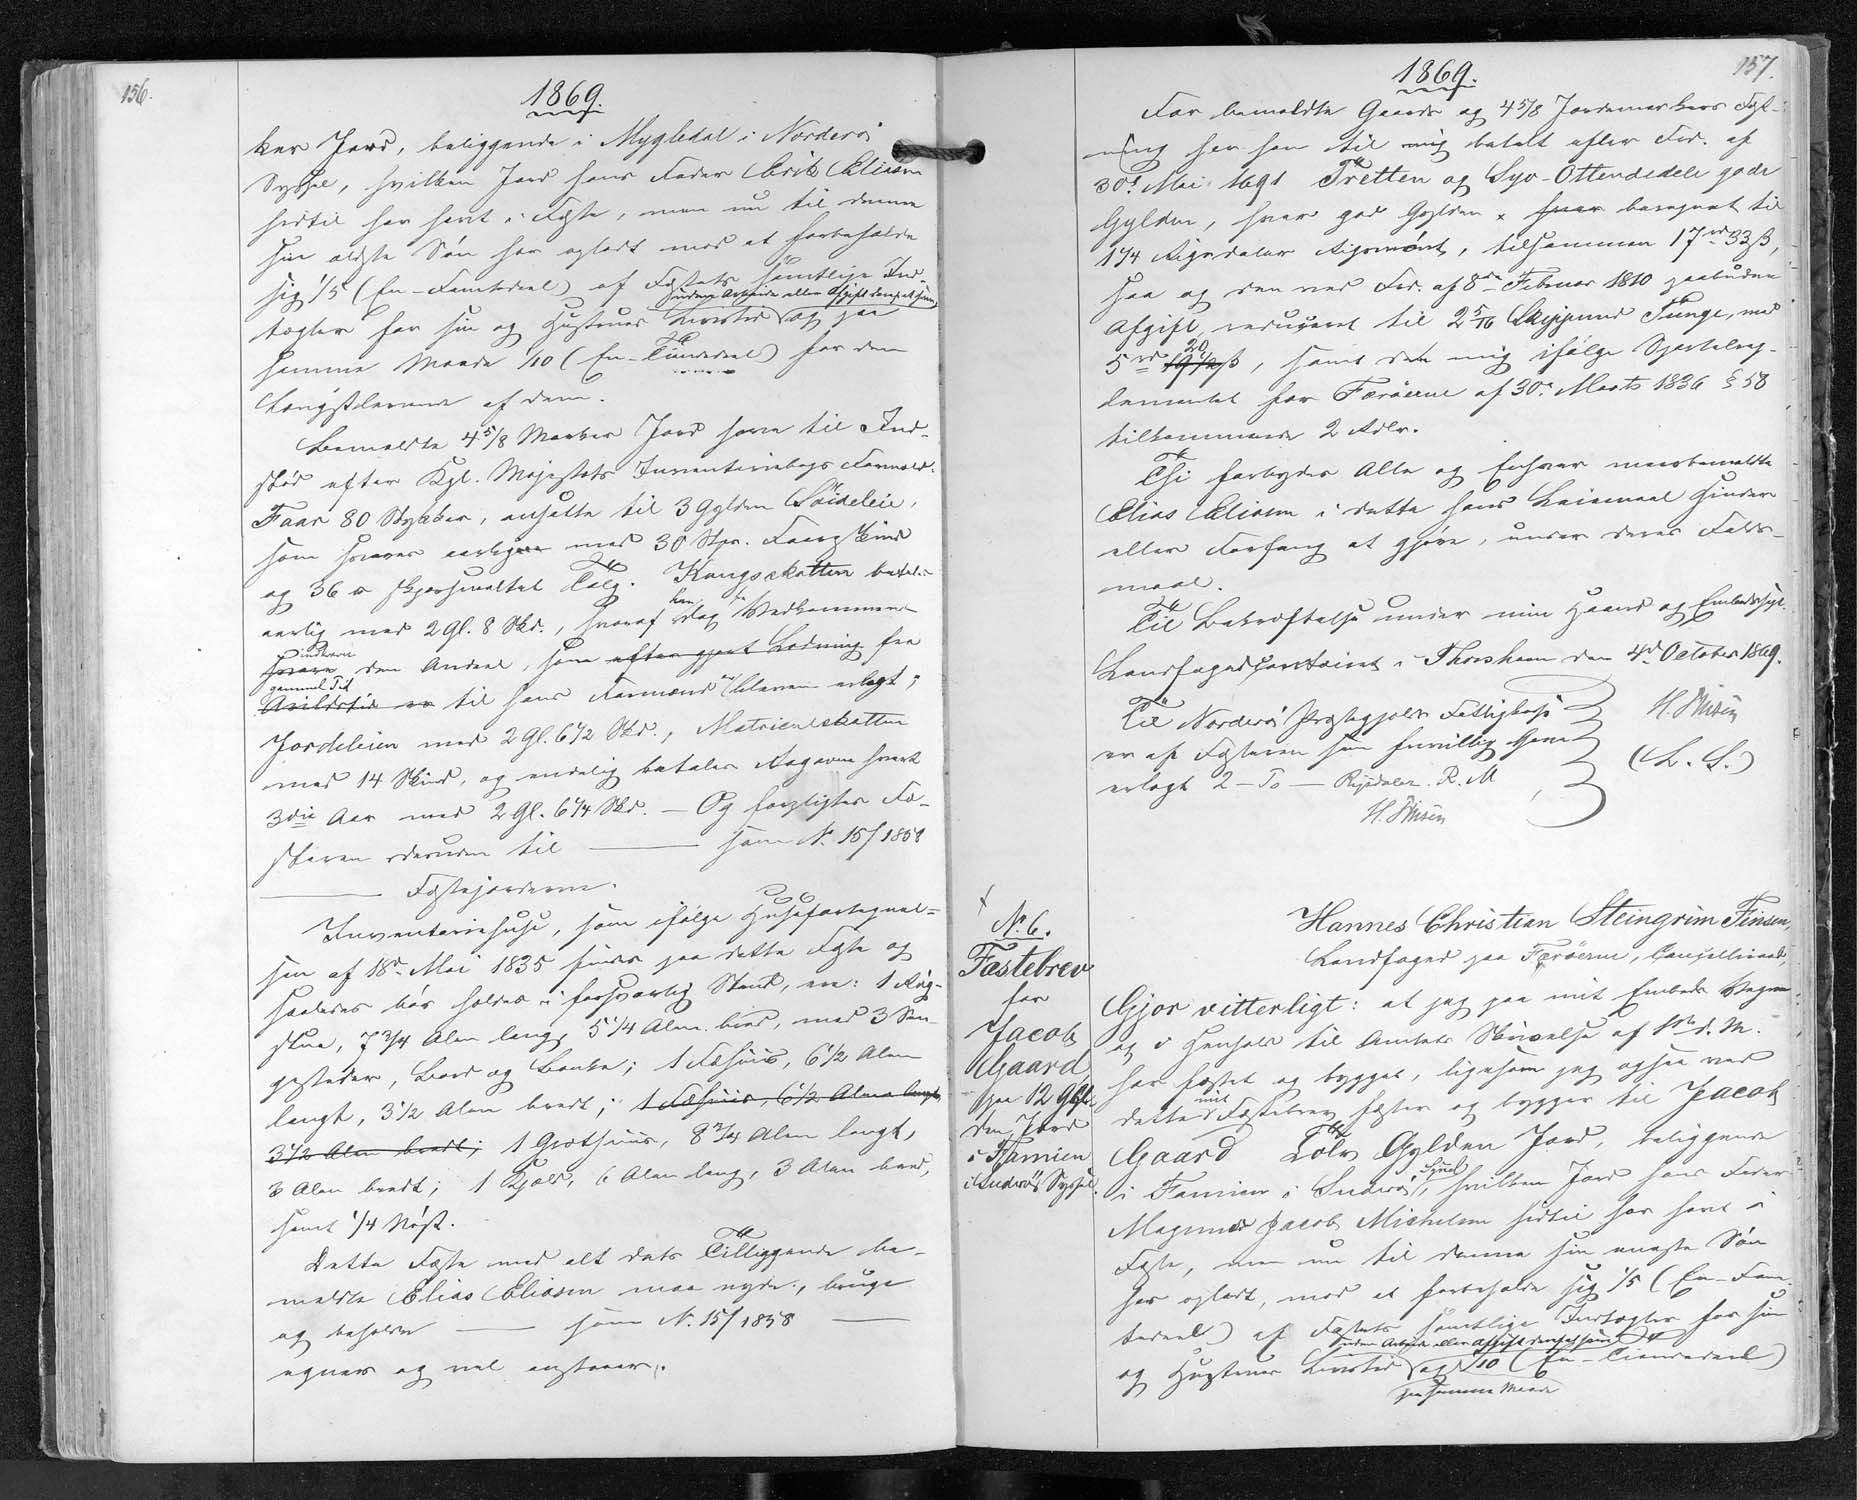 156.
1869.
ker Jord, beliggende i Mygledal i Norderö
Syssel, hvilken Jord hans Fader Erik Eliasen
hidtil har havt i Fæste, men nu til denne
sin ældste Søn har opladt mod at forbeholde
sig 1/5 (En-Femtedeel) af Fæstets samtlige Ind-
uden Arbeide eller Afgift deraf at svare
tægter for sin og Hustrues Levetid og paa
samme Maade 1/10 (En-Tiendedeel) for den
Længstlevende af dem.
Bemeldte 4 5/8 Marker Jord have til Ind-
stød efter Kgl. Majestæts Inventariebogs Formeld:
Faar 80 Stykker, ansatte til 3 Gylden Söideleie,
som svares aarligen med 30 Stpr. Faareskind
og 36 ℔ skjørsmeltet Talg. Kongsskatten betales
aarlig med 2 Gl. 8 Skd., hvoraf dog Vedkommende
indkræve
svare den Andeel, som efter gjort Lodning fra
gammel Tid
Arildstid er til hans Formænd bleven erlagt;
Jordeleien med 2 Gl. 6 1/2 Skd., Matrieulskatten
med 14 Skind, og endelig betales Aagaven hvert
3die Aar med 2 Gl. 6 1/4 Skd. — Og forpligtes Fæ-
steren desuden til — som N. 15/1858
— Fæstejorderne.
Inventariehuse, som ifølge Husefortegnel-
sen af 18de Mai 1835 findes paa dette Fæste og
saaledes bör holdes i forsvarlig Stand, ere: 1 Røg-
stue, 7 3/4 Alen lang, 5 1/4 Alen bred, med 3 Sen-
gesteder, Bord og Bænke; 1 Fæhuus, 6 1/2 Alen
langt, 3 1/2 Alen bredt; 1 Fæhuus, 6 1/2 Alen langt,
3 1/2 Alen bredt; 1 Grothuus, 8 3/4 Alen langt,
3 Alen bredt; 1 Kjald, 6 Alen lang, 3 Alen bred,
samt 1/4 Nøst.
Dette Fæste med alt dets Tilliggende be-
meldte Elias Eliasen maa nyde, bruge
og beholde — som N. 15/1858 —
egner og vel anstaaer.
157.
1869.
For bemeldte Gaards og 4 5/8 Jordemarkers Fæst-
ning har han til mig betalt efter For. af
30te Mai 1691 Tretten og Syv-Ottendedele gode
Gylden, hver god Gylden × hver beregnet til
1 1/4 Rigsdaler Rigsmönt, tilsammen 17 rd 33 ß,
saa og den ved For. af 8de Februar 1810 paabudne
Afgift, reduceret til 2 5/16 Skippund Tunge, med
20
5 rd 19 1/2 ß, samt det mig ifølge Sportelreg-
lementet for Færöerne af 30te Marts 1836 § 58
tilkommende 2 Rdlr.
Thi forbydes Alle og Enhver meerbemeldte
Elias Eliasen i dette hans Leiemaal Hinder
eller Forfang at gjöre, under deres Falds-
maal.
Til Bekræftelse under min Haand og Embedssegl.
Landfogedcontoiret i Thorshavn den 4de October 1869.
Til Norderö Præstegjelds Fattigkasse
er af Fæsteren som frivillig Gave
erlagt 2 — To — Rigsdaler R. M
H. Finsen
H. Finsen
(L. S.)
N. 6.
Fæstebrev
for
Jacob
Gaard
paa 12 Gyl-
den Jord
i Famien
i Suderö Syssel.
Hannes Christian Steingrim Finsen,
Landfoged paa Færöerne, Cancelliraad,
Gjør vitterligt: at jeg paa mit Embeds Vegne
og i Henhold til Amtets Skrivelse af 1ste d. M.
har fæstet og bygget, ligesom jeg ogsaa ved
mit
dette Fæstebrev fæster og bygger til Jacob
Gaard Tolv Gylden Jord, beliggende
Syssel
i Famien i Suderö, hvilken Jord hans Fader
Magnus Jacob Michelsen hidtil har havt i
Fæste, men nu til denne sin eneste Søn
har opladt, mod at forbeholde sig 1/5 (En-Fem-
tedeel) af Fæstets samtlige Indtægter for sin
uden Arbeide eller Afgift deraf at svare
og Hustrues Levetid og 1/10 (En-Tiendedeel)
paa samme Maade